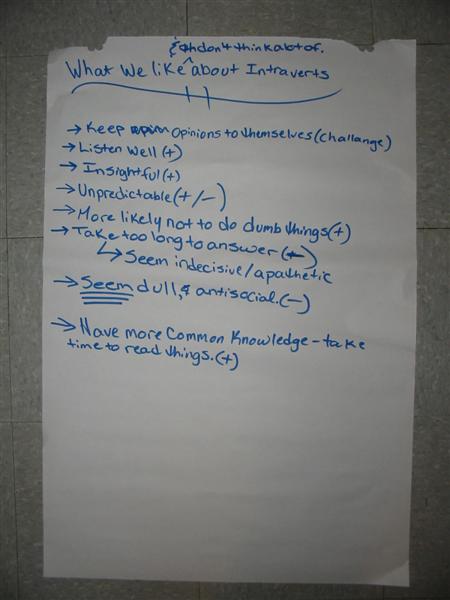 & don't think a lot of.
What We like ^ about Intraverts
→ Keep Opinions to themselves (challange)
→ Listen Well (+)
→ Insightful (+)
→ Unpredictable (+/-)
→ More likely not to do dumb things (+)
→ Take too long to answer (-)
↳ Seem indecisive/apathetic
→ Seem dull, & antisocial. (-)
→ Have more Common Knowledge - take
time to read things. (+)